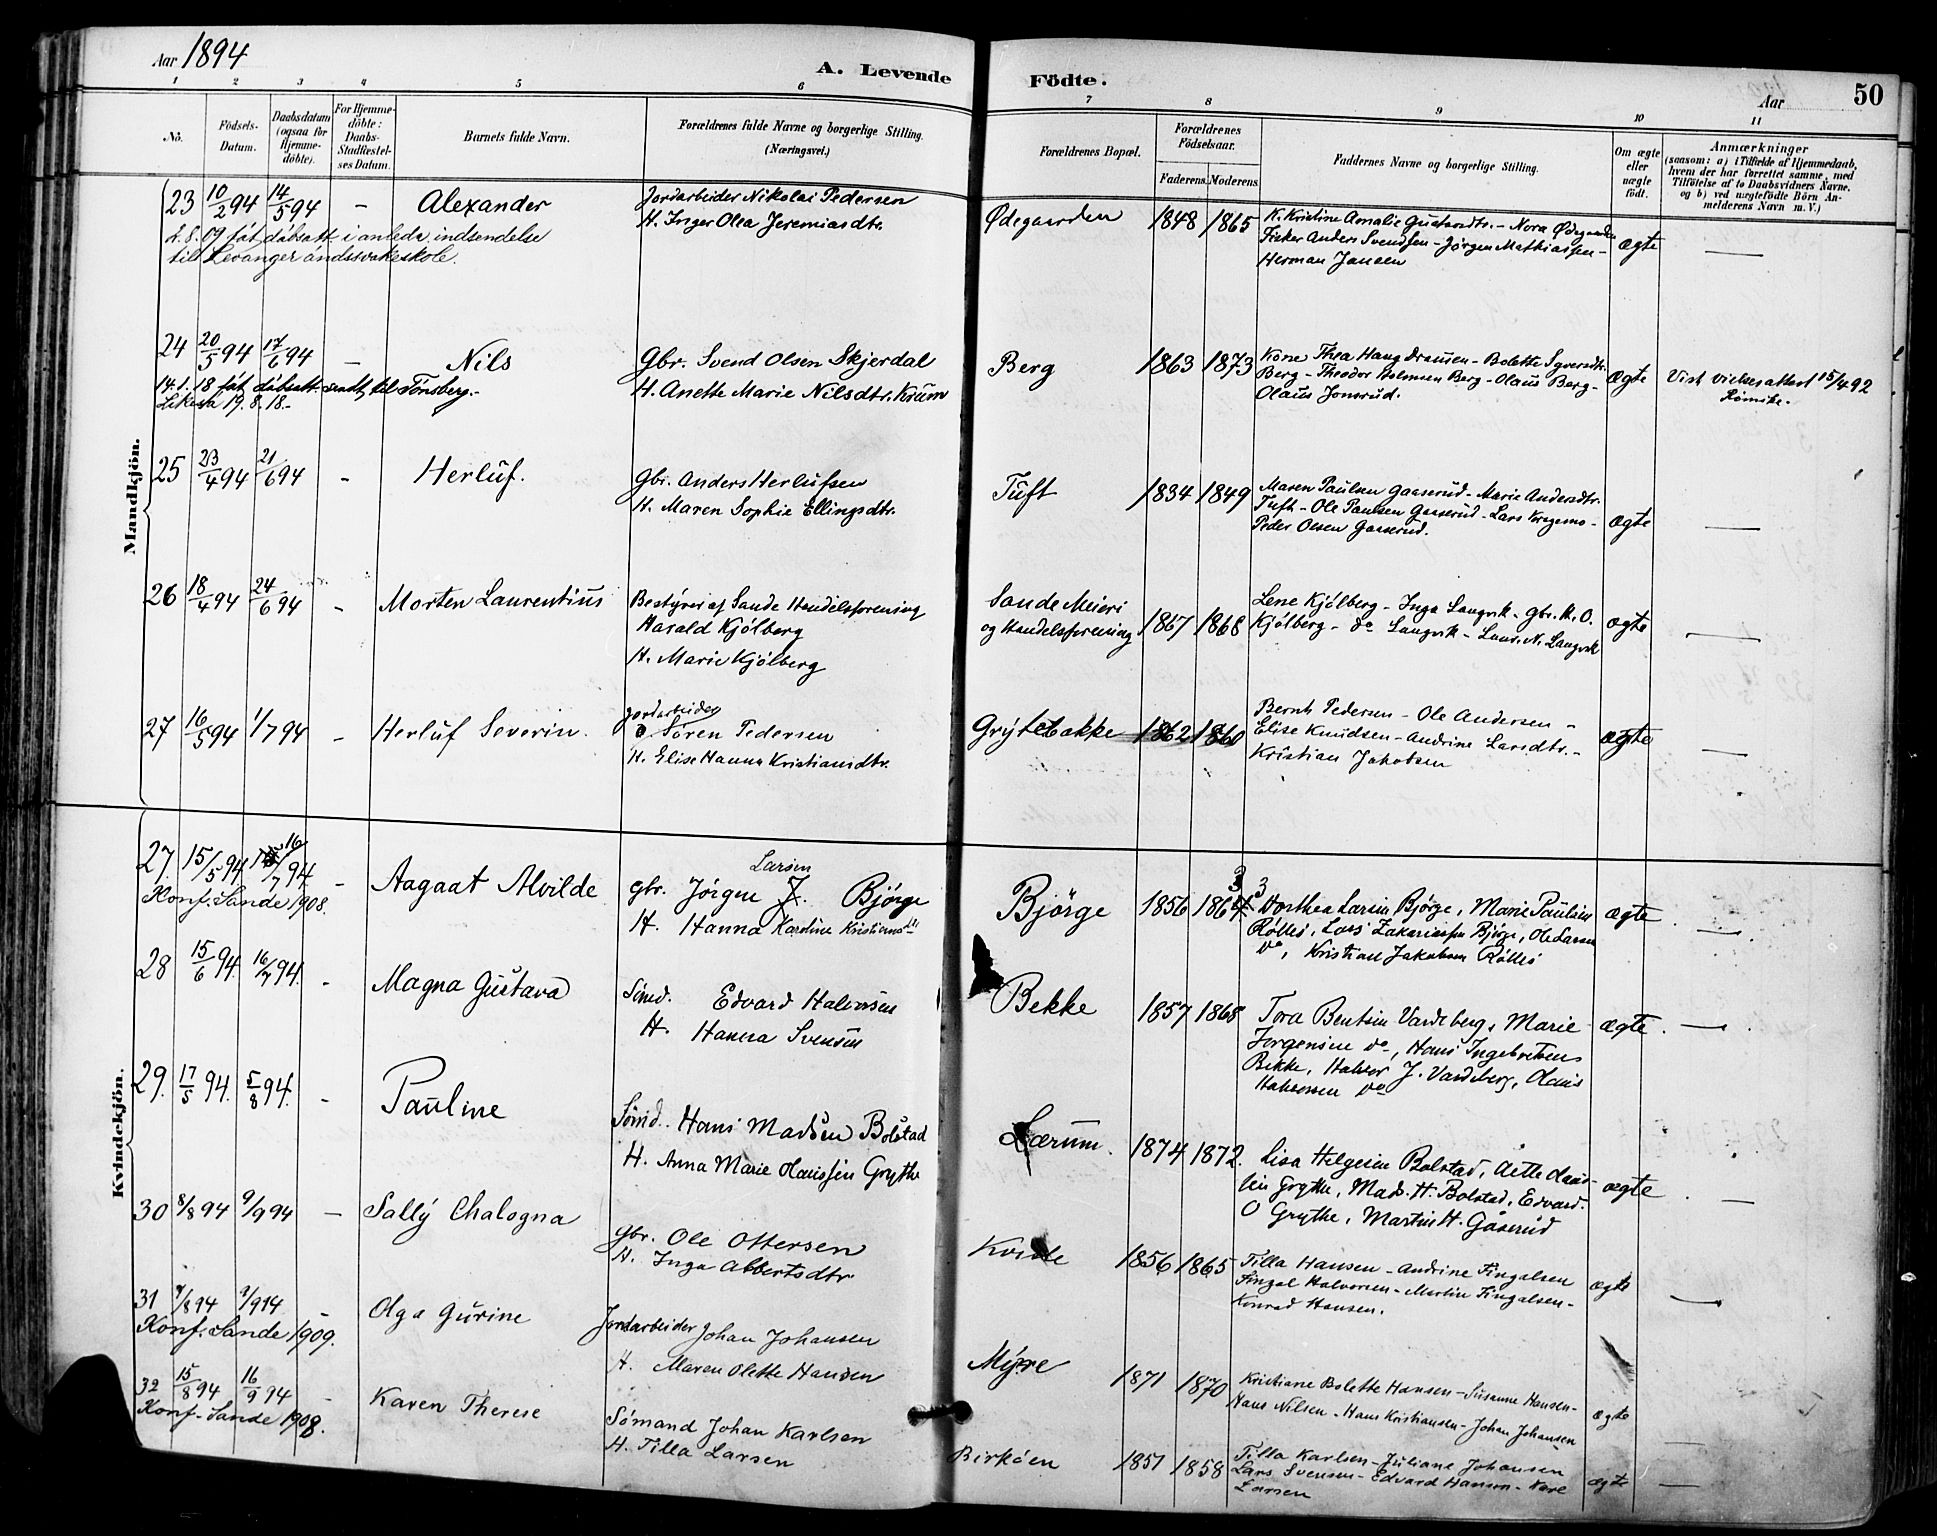 Aar 1894
A. Levende Födte.
Aar 50
1 2 3 4 5 6 7 8 9 10 11
No.
Födsels-Datum.
Daabsdatum (ogsaa for Hjemme-döbte).
For Hjemme-döbte: Daabs-Stadfæstel-ses Datum.
Barnets fulde Navn.
Forældrenes fulde Navne og borgerlige Stilling. (Næringsvei.)
Forældrenes Bopæl.
Forældrenes Födselsaar.
Faderens. Moderens.
Faddernes Navne og borgerlige Stilling.
Om ægte eller uægte födt.
Anmærkninger
(saasom: a) i Tilfælde af Hjemmedaab, hvem der har forrettet samme, med Tilföielse af to Daabsvidners Navne, og b) ved uægtefödte Börn An-melderens Navn m. V.)
Mandkjön.
23 10/2 94 14/5 94 – Alexander
Jordarbeider Nikolai Pedersen
H. Inger Olea Jeremiasdtr.
Ødegaarden 1848 1865
K. Kristine Amalie Gustavsdtr. - Nora Ødegaarden
Fisker Anders Svendsen - Jørgen Mathiassen -
Herman Jansen
ægte —
2.8.09 fåt dåbsatt. i anledn. indsendelse
til Levanger åndssvakeskole.
24 20/5 94 17/6 94 — Nils
Gbr. Svend Olsen Skjerdal
H. Anette Marie Nilsdtr. Krum
Berg 1863 1873
Kone Thea Haug Dramen - Bolette Syversdtr.
Berg - Theodor Holmsen Berg - Olaus Berg -
Olaus Jonsrud.
ægte Vist vielsesattest 15/4 92
14.1.18 fåt dåbsatt. sendt til Tønsberg.-
Likeså 19.8.18.-
25 23/4 94 21/6 94 - Herluf.
Gbr. Anders Herlufsen
H. Maren Sophie Ellingsdtr.
Tuft 1834 1849
Maren Paulsen Gaaserud - Marie Andersdtr.
Tuft - Ole Paulsen Gaaserud - Lars
Peder Olsen Gaaserud.
ægte —
26 18/4 94 24/6 94 - Morten Laurentius
Bestyrer af Sande Handelsforening
Harald Kjölberg
H. Marie Kjölberg
Sande Meieri
og Handelsforening 1867 1868
Lene Kjölberg - Inga Langvik - Gbr. M. O.
Kjölberg - do Langvik - Laur. N. Langvik
ægte —
27 16/5 94 1/7 94 - Herluf Severin.
Jordarbeider
Sören Pedersen
H. Elise Hanna Kristiansdtr.
Grytebakke 1862 1860
Bernh Pedersen - Ole Andersen -
Elise Knudsen - Andrine Larsdtr. -
Kristian Jakobsen
ægte —
Kvindekjön.
27. 15/5 94 16/7 94. - Aagaat Alvilde
Larsen
gbr. Jörgen J. Bjørge
H. Hanna Karoline Kristiansdtr
Bjørge 1856 1863
Dorthea Larsen Bjørge, Marie Paulsen
Rölles, Lars Zakariassen Bjørge, Ole Larsen
do, Kristian Jakobsen Rölles
ægte —
Konf. Sande 1908.
28 15/6 94. 16/7 94. - Magna Gustava
Sömd. Edvard Halvorsen
H. Hanna Svensen
Bekke 1857 1868
Tora Bentsen Vardeberg, Marie
Jorgensen do, Hans Ingebretsen
Bekke, Halvor J. Vardeberg, Hans
Halvorsen do
ægte. —
29. 17/5 94. 5/8 94. - Pauline
Sömd. Hans Madsen Bolstad
H. Anna Marie Olaussen Grythe
Lærum. 1874 1872.
Lisa Helgesen Bolstad, Aette Olaus-
sen Grythe, Mads. H. Bolstad, Edvard.
O Grythe, Martin H. Gåserud
ægte —
30 8/8 94 9/9 94 — Sally Chalogna
Gbr. Ole Ottersen
H. Inga Albertsdtr
Kvisle 1856 1865
Tilla Hansen - Andrine Fingalsen
Fingal Halvorsen - Martin Fingalsen -
Konrad Hansen.
ægte —
31 9/8 94 9/9 94 - Olga Gurine
Jordarbeider Johan Johansen
H. Maren Olette Hansen
Myre 1871 1870
Kristiane Bolette Hansen - Susanne Hansen -
Hans Nilsen - Hans Kristiansen - Johan Johansen
ægte —
Konf. Sande 1909.
32 15/8 94 16/9 94 - Karen Therese
Sömand Johan Karlsen
H. Tilla Larsen
Birköen 1851 1858
Tilla Karlsen - Juliane Johansen
Lars Svensen - Edvard Hansen - Kare
Larsen
ægte —
Konf. Sande 1908.